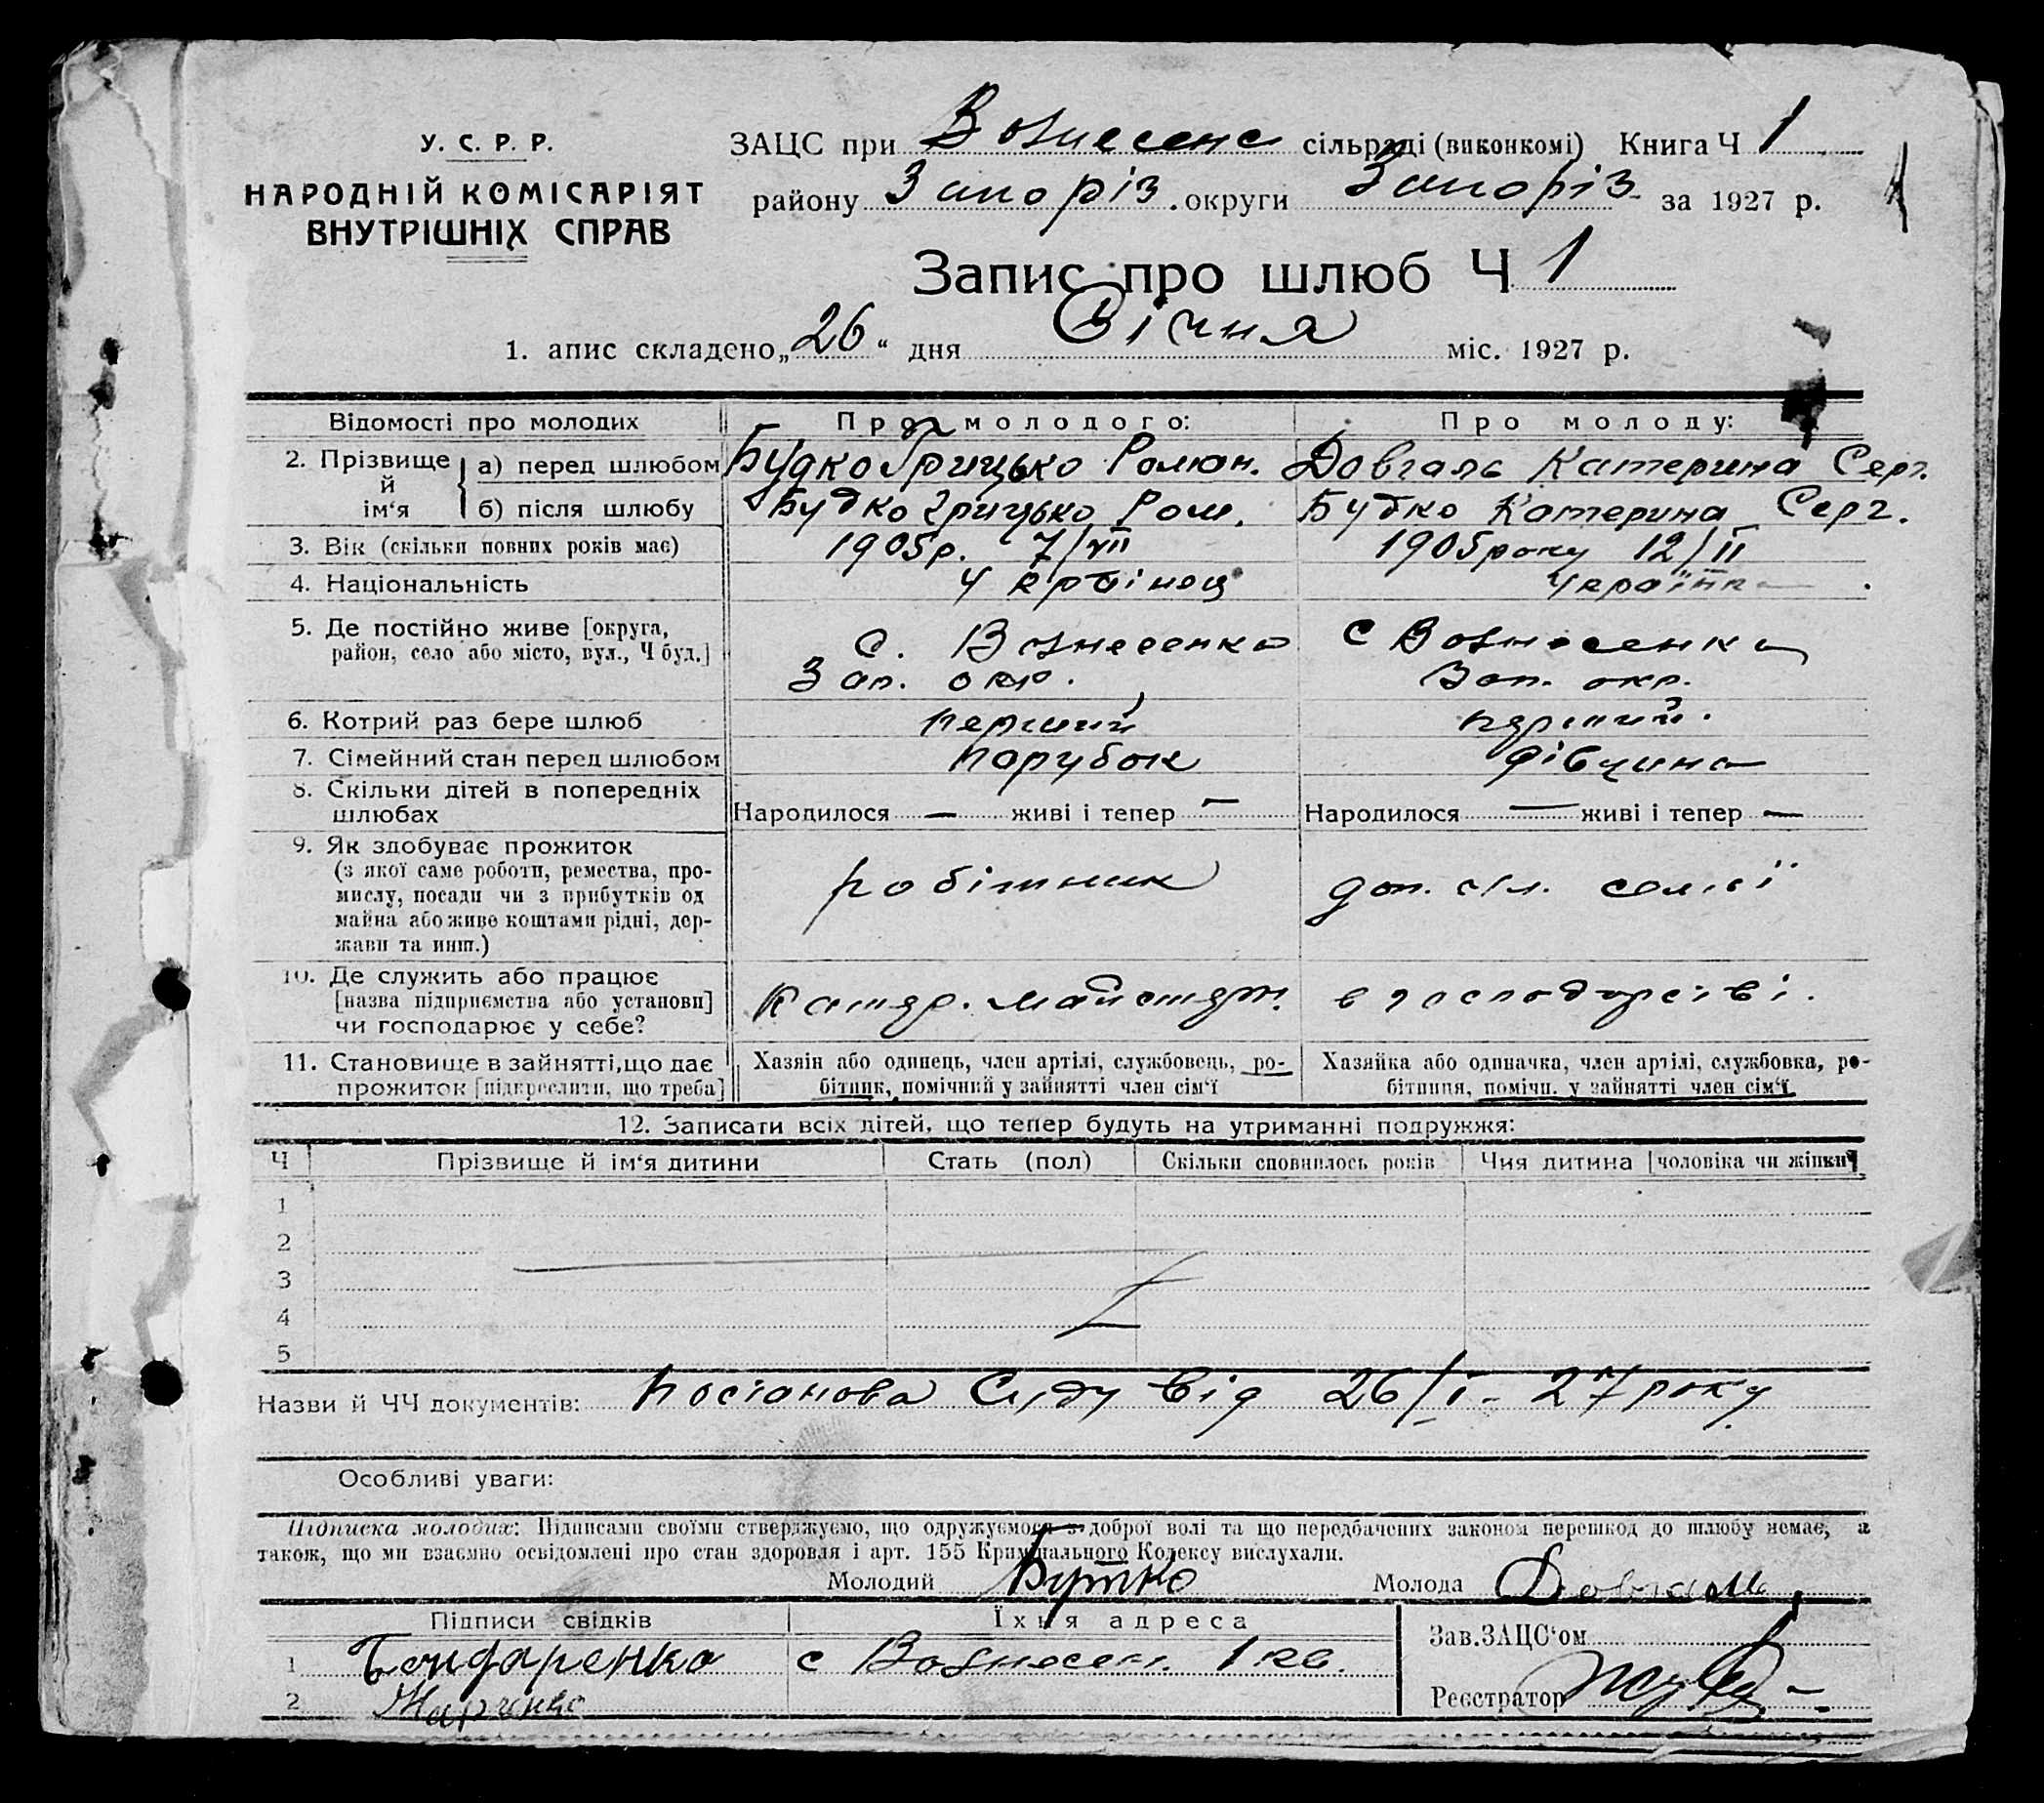 У. С. Р. Р.
НАРОДНІЙ КОМІСАРІЯТ
ВНУТРІШНІХ СПРАВ
ЗАЦС при Вознесенс сільраді (виконкомі) Книга Ч 1
району Запоріз. округи Запоріз за 1927 р.
Запис про шлюб Ч 1
1. апис складено „26“ дня Січня міс. 1927 р.
Відомості про молодих Про молодого: Про молоду:
2. Прізвище й ім‘я а) перед шлюбом Будко Грицько Роман. Довгаль Катерина Серг.
б) після шлюбу Будко Грицько Ром. Будко Катерина Серг.
3. Вік (скільки повних років має) 1905р. 7/VII 1905року 12/II
4. Національність Українец Українка
5. Де постійно живе [округа, район, село або місто, вул., Ч буд.] с. Вознесенка С Вознесенка
Зап. окр. Зап. окр.
6. Котрий раз бере шлюб перший перший.
7. Сімейний стан перед шлюбом парубок дівчина
8. Скільки дітей в попередніх шлюбах Народилося — живі і тепер — Народилося — живі і тепер —
9. Як здобуває прожиток
(з якої саме роботи, ремества, про-
мислу, посади чи з прибутків од
майна або живе коштами рідні, дер-
жави та инш.)
робітник доп. чл. семьї
10. Де служить або працює
[назва підприємства або установи]
чи господарює у себе?
майстерн. в господарстві.
11. Становище в зайнятті, що дає
прожиток [підкреслити, що треба]
Хазяін або одинець, член артілі, службовець, ро-
бітник, помічний у зайнятті член сім‘ї
Хазяйка або одиначка, член артілі, службовка, ро-
бітниця, помічн. у зайнятті член сім‘ї
12. Записати всіх дітей, що тепер будуть на утриманні подружжя:
Ч Прізвище й ім‘я дитини Стать (пол) Скільки сповнилось років Чия дитина [чоловіка чи жінки]
1
2
3
4
5
Назви й ЧЧ документів: Постанова Суду від 26/I - 27 року
Особливі уваги:
Підписка молодих: Підписами своїми стверджуємо, що одружуємося з доброї волі та що передбачених законом перешкод до шлюбу немає, а
також, що ми взаємно освідомлені про стан здоровля і арт. 155 Кримінального Кодексу вислухали.
Молодий Бутко Молода Довгаль
Підписи свідків Їхня адреса
1 Бондаренко с Вознесен. 1 кв.
2
Зав. ЗАЦС‘ом
Реєстратор